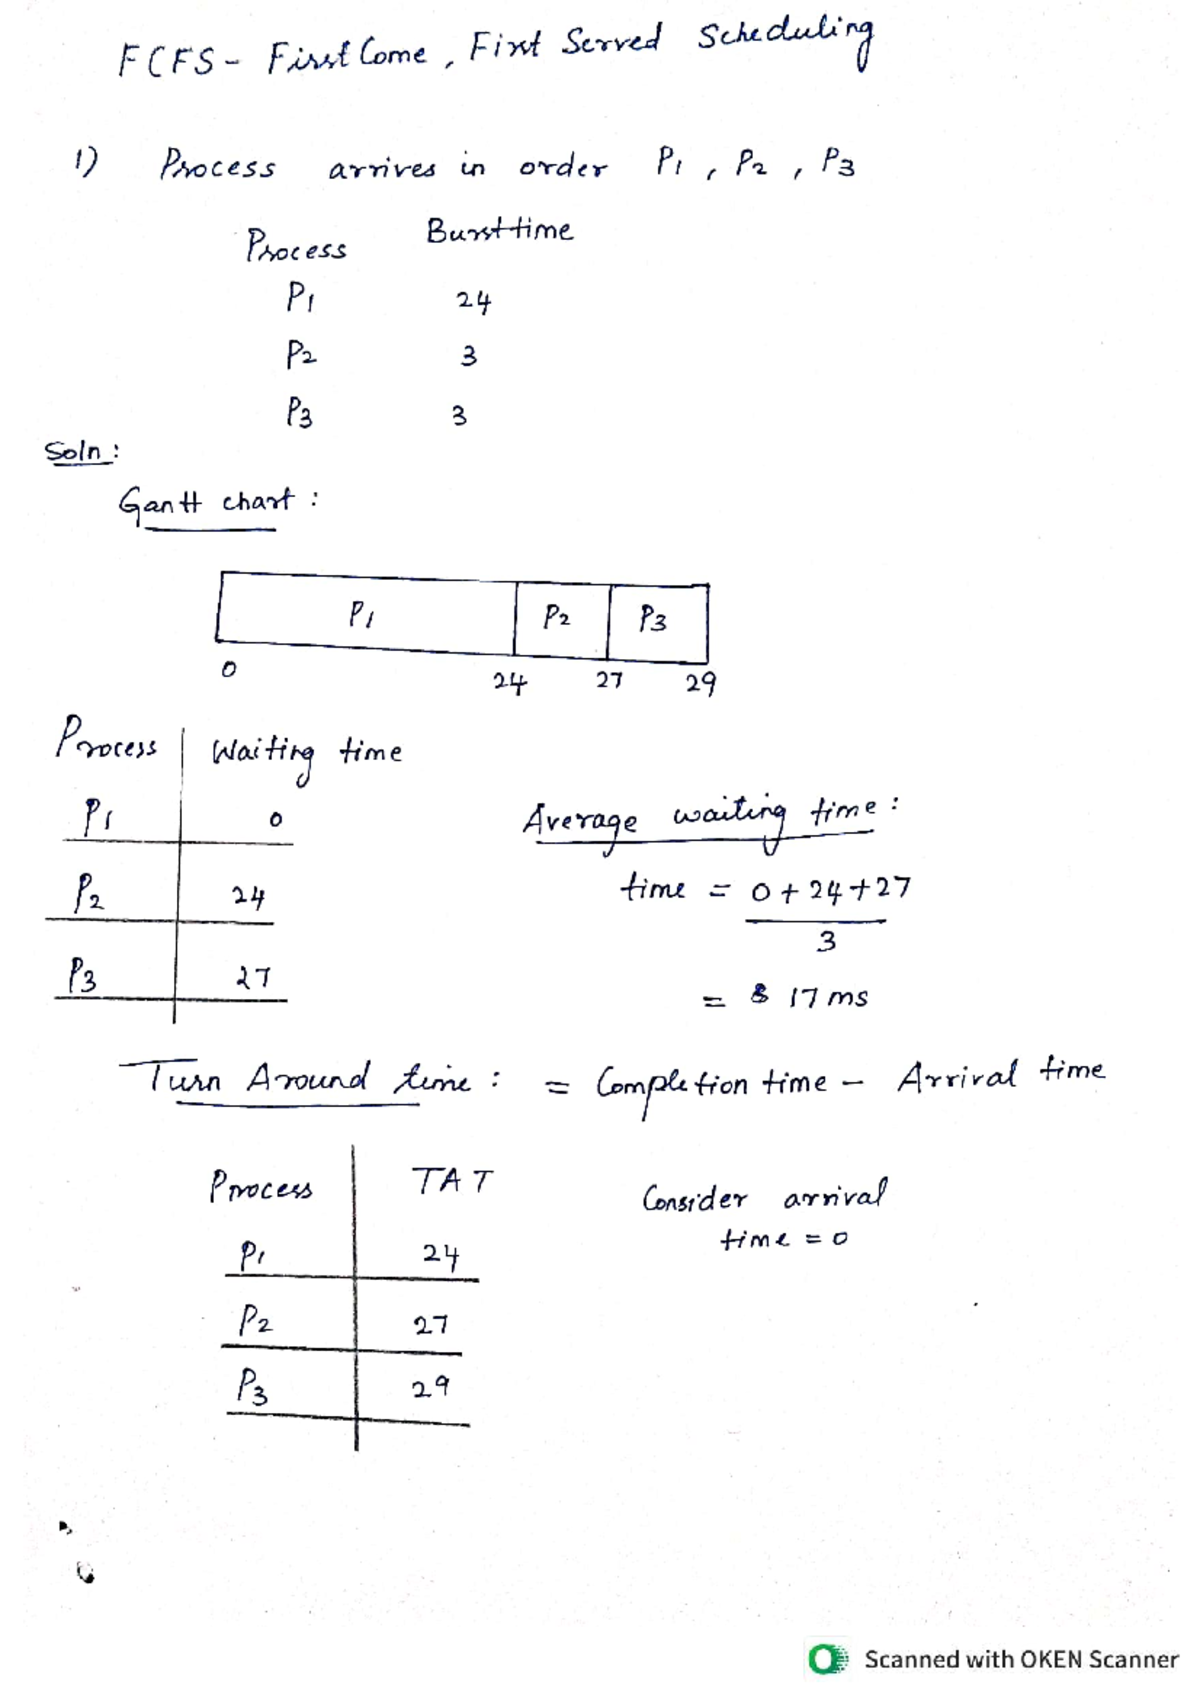 FCFS - First Come, First Served Scheduling
1) Process arrives in order P1, P2, P3
Process Burst time
P1 24
P2 3
P3 3
Soln:
Gantt chart:
P1 P2 P3
0 24 27 29
Process Waiting time
P1 0
P2 24
P3 27
Average waiting time:
time = 0+24+27
3
= 17 ms
Turn Around time: = Completion time - Arrival time
Process TAT
P1 24
P2 27
P3 29
Consider arrival
time = 0
Scanned with OKEN Scanner